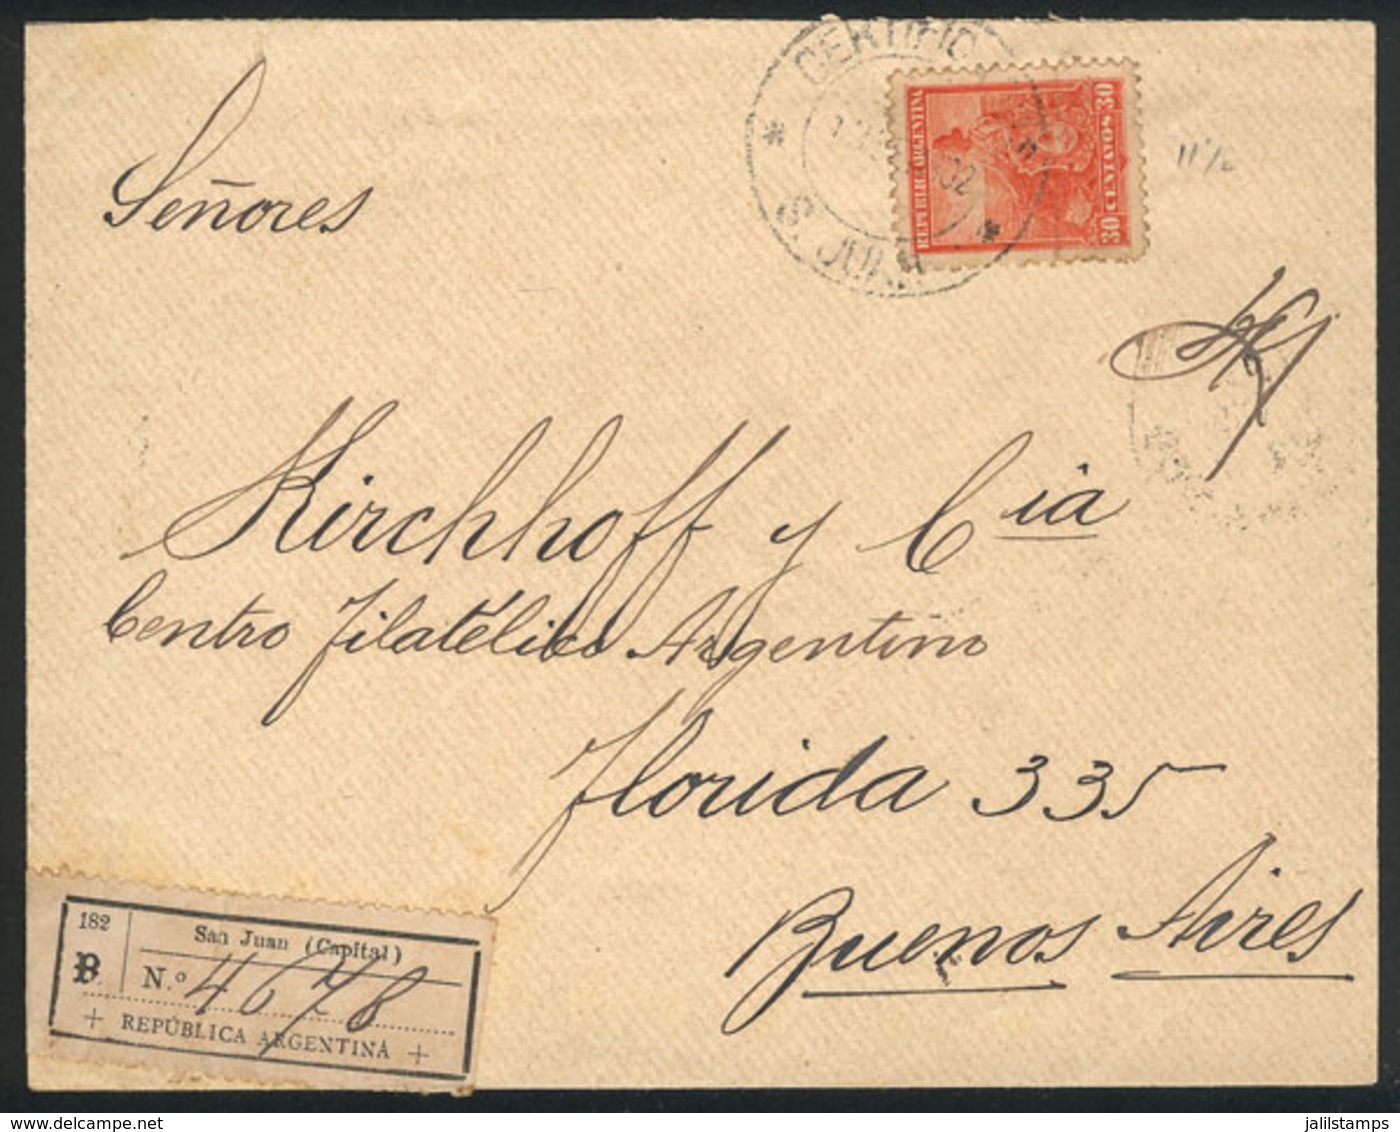 CERTIFIC
902
S. JUAN
REPUBLICA ARGENTINA
30 CENTAVOS 30
11½
Señores
Kirchhoff y Cia
Centro Filatélico Argentino
Florida 335
Buenos Aires
182
San Juan (Capital)
R
N.º 4678
+ REPÚBLICA ARGENTINA +
jalilstamps